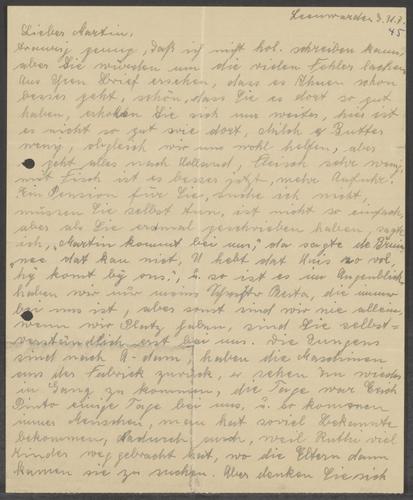 Leeuwarden 3.11.7.
45
Lieber Martin,
traurig genug, daß ich nicht hol. schreiben kann,
aber Sie würden um die vielen Fehler lachen
Aus Ihren Brief ersehen, dass es Ihnen schon
besser geht, schön, dass Sie es dort so gut
haben, erholen Sie sich nur weiter, hier ist
es nicht so gut wie dort, Milch & Butter
wenig, obgleich wir uns wohl helfen, aber
geht alles nach Holland, Fleisch sehr wenig
mit Fisch ist es besser jetzt, mehr Aufuhr!
Ein Pension für Sie, suche ich nicht,
müssen Sie selbst tun, ist nicht so einfach,
aber als Sie erstmal geschrieben haben, sagte
ich, "Martin kommt bei uns," da sagte de Bruin
"nee dat kan niet, U hebt dat Huis zo vol,
hij komt by ons", u. so ist es im Augenblick
haben wir nur meine Schwester Berta, die immer
bei uns ist, aber sonst sind wir nie allein,
wenn wir Platz haben, sind Sie selbst-
verständlich erst bei uns. Die Jungens
sind nach A-dam, haben die Maschinen
aus der Fabrick zurück, u. sehen Im wieder
in Gang zu kommen, die Tage war Erich
Pinto einige Tage bei uns, u. so kommen
immer Menschen, man hat soviel Bekannte
bekommen, dadurch auch, weil Ruth viel
Kinder weg gebracht hat, wo die Eltern dann
kamen sie zu suchen. Aber denken Sie sich